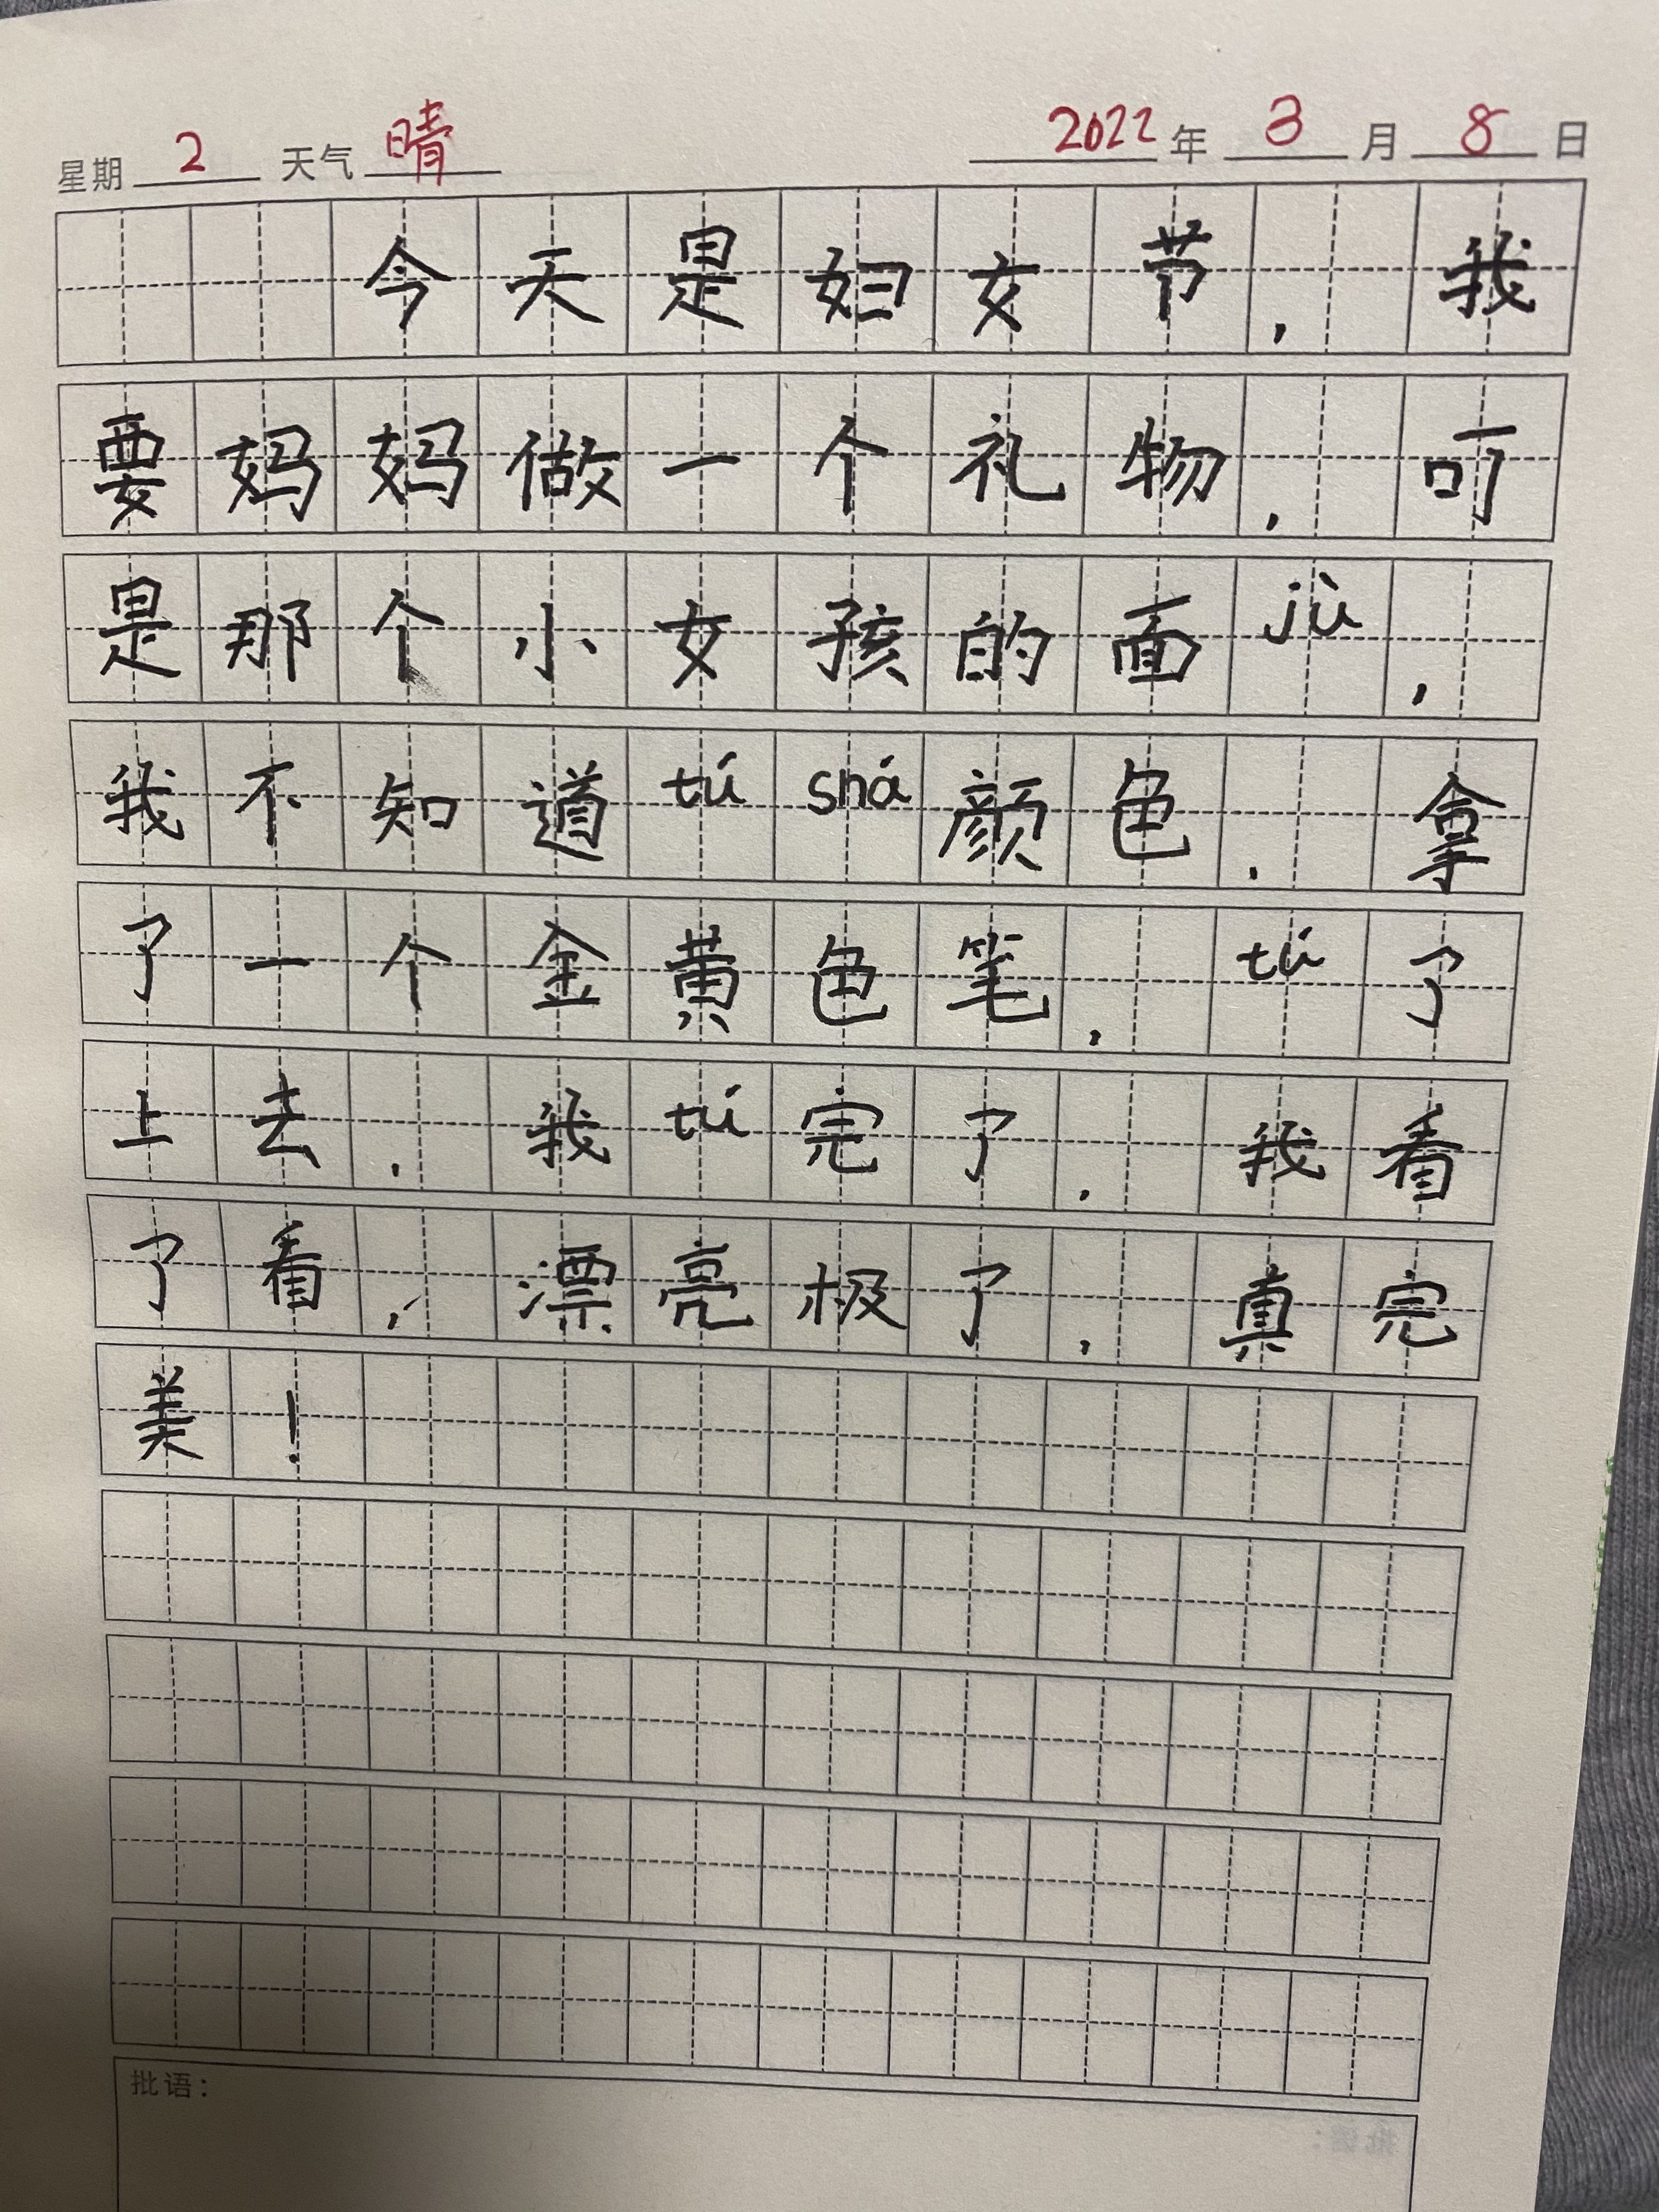 星期 2 天气 晴 2022 年 3 月 8 日
今天是妇女节,我
要妈妈做一个礼物.可
是那个小女孩的面jù,
我不知道tú shá颜色.拿
了一个金黄色笔,tú了
上去.我tú完了.我看
了看,漂亮极了,真完
美!
批语: